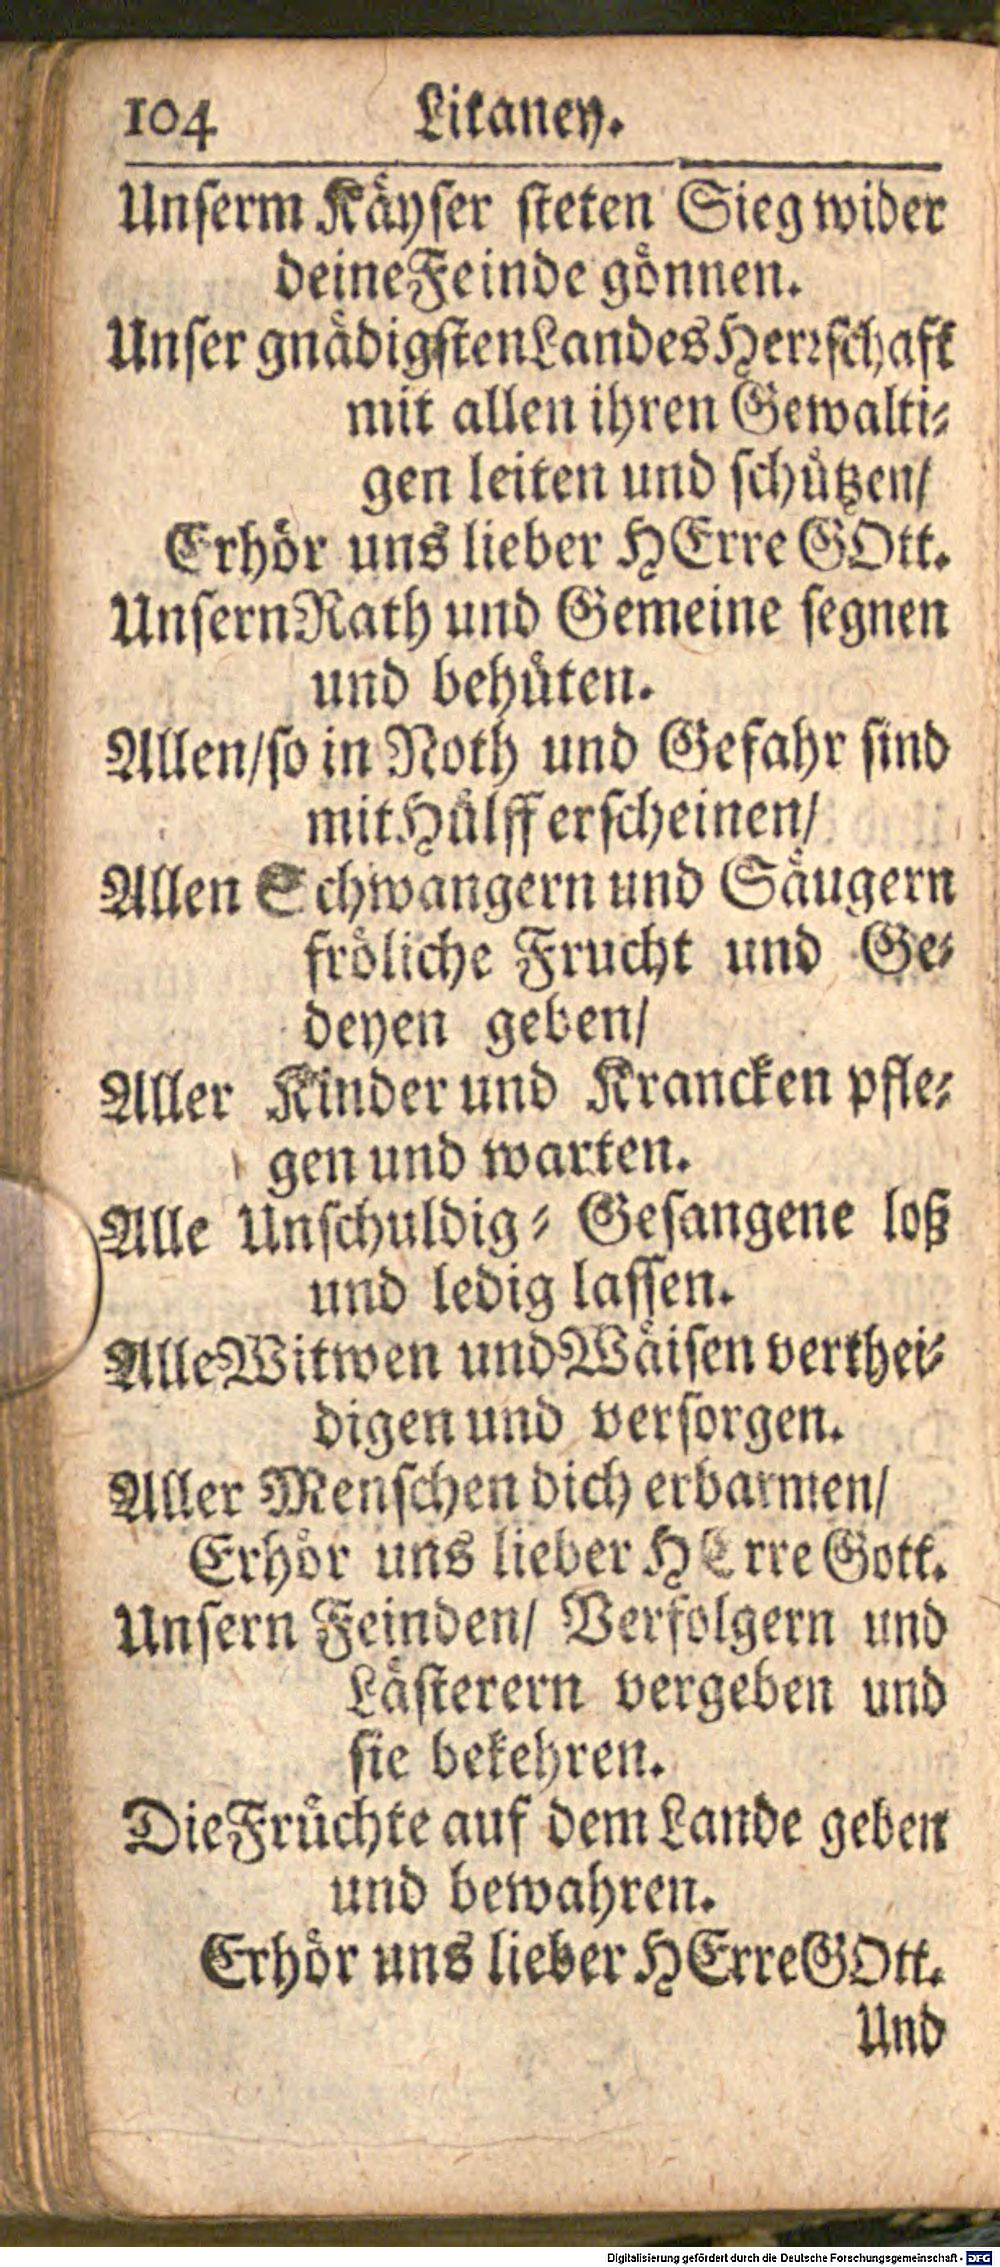 104 Litaney.
Unserm Käyser steten Sieg wider
deine Feinde gönnen.
Unser gnädigsten Landes Herrschaft
mit allen ihren Gewalti-
gen leiten und schützen/
Erhör uns lieber HErre GOtt.
Unsern Rath und Gemeine segnen
und behüten.
Allen/so in Noth und Gefahr sind
mit Hülff erscheinen/
Allen Schwangern und Säugern
fröliche Frucht und Ge-
deyen geben/
Aller Kinder und Krancken pfle-
gen und warten.
Alle Unschuldig- Gefangene loß
und ledig lassen.
Alle Witwen und Wäisen verthei-
digen und versorgen.
Aller Menschen dich erbarmen/
Erhör uns lieber HErre Gott.
Unsern Feinden/ Verfolgern und
Lästerern vergeben und
sie bekehren.
Die Früchte auf dem Lande geben
und bewahren.
Erhör uns lieber HErre GOtt.
Und
Digitalisierung gefördert durch die Deutsche Forschungsgemeinschaft - DFG